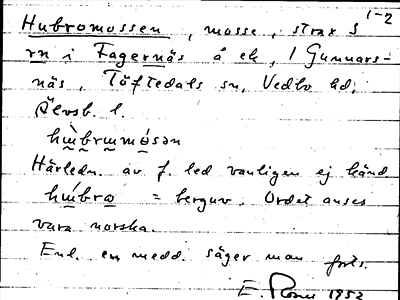 1-2
Hubromossen, mosse, strax S
rn i Fagernäs å ek, 1 Gunnars-
näs, Töftedals sn, Vedbo hd,
Älvsb. l.
Härledn. av f. led vanligen ej känd
= berguv. Ordet anses
vara norska.
Enl. en medd. säger man forts.
E. 1952